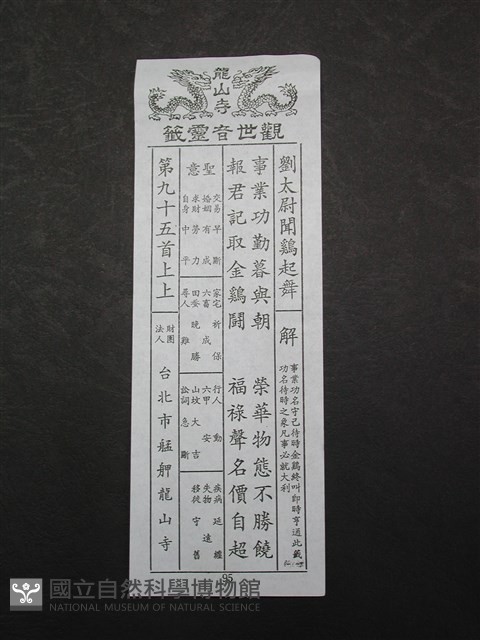 龍山寺
觀世音靈籤
劉太尉聞鷄起舞
解
事業功名守己待時金鷄終叫即時亨通此籤
功名待時之象凡事必就大利
事業功勤暮與朝
榮華物態不勝饒
報君記取金鷄鬪
福祿聲名價自超
聖意
交易早斷
婚姻有成
求財勞力
自身中平
家宅祈保
六畜成
田蚕晚勝
尋人難
行人動
六甲安
山坟大吉
訟詞急斷
疾病延纏
失物遠
移徙守舊
第九十五首上上
財團法人
台北市艋舺龍山寺
95
國立自然科學博物館
NATIONAL MUSEUM OF NATURAL SCIENCE